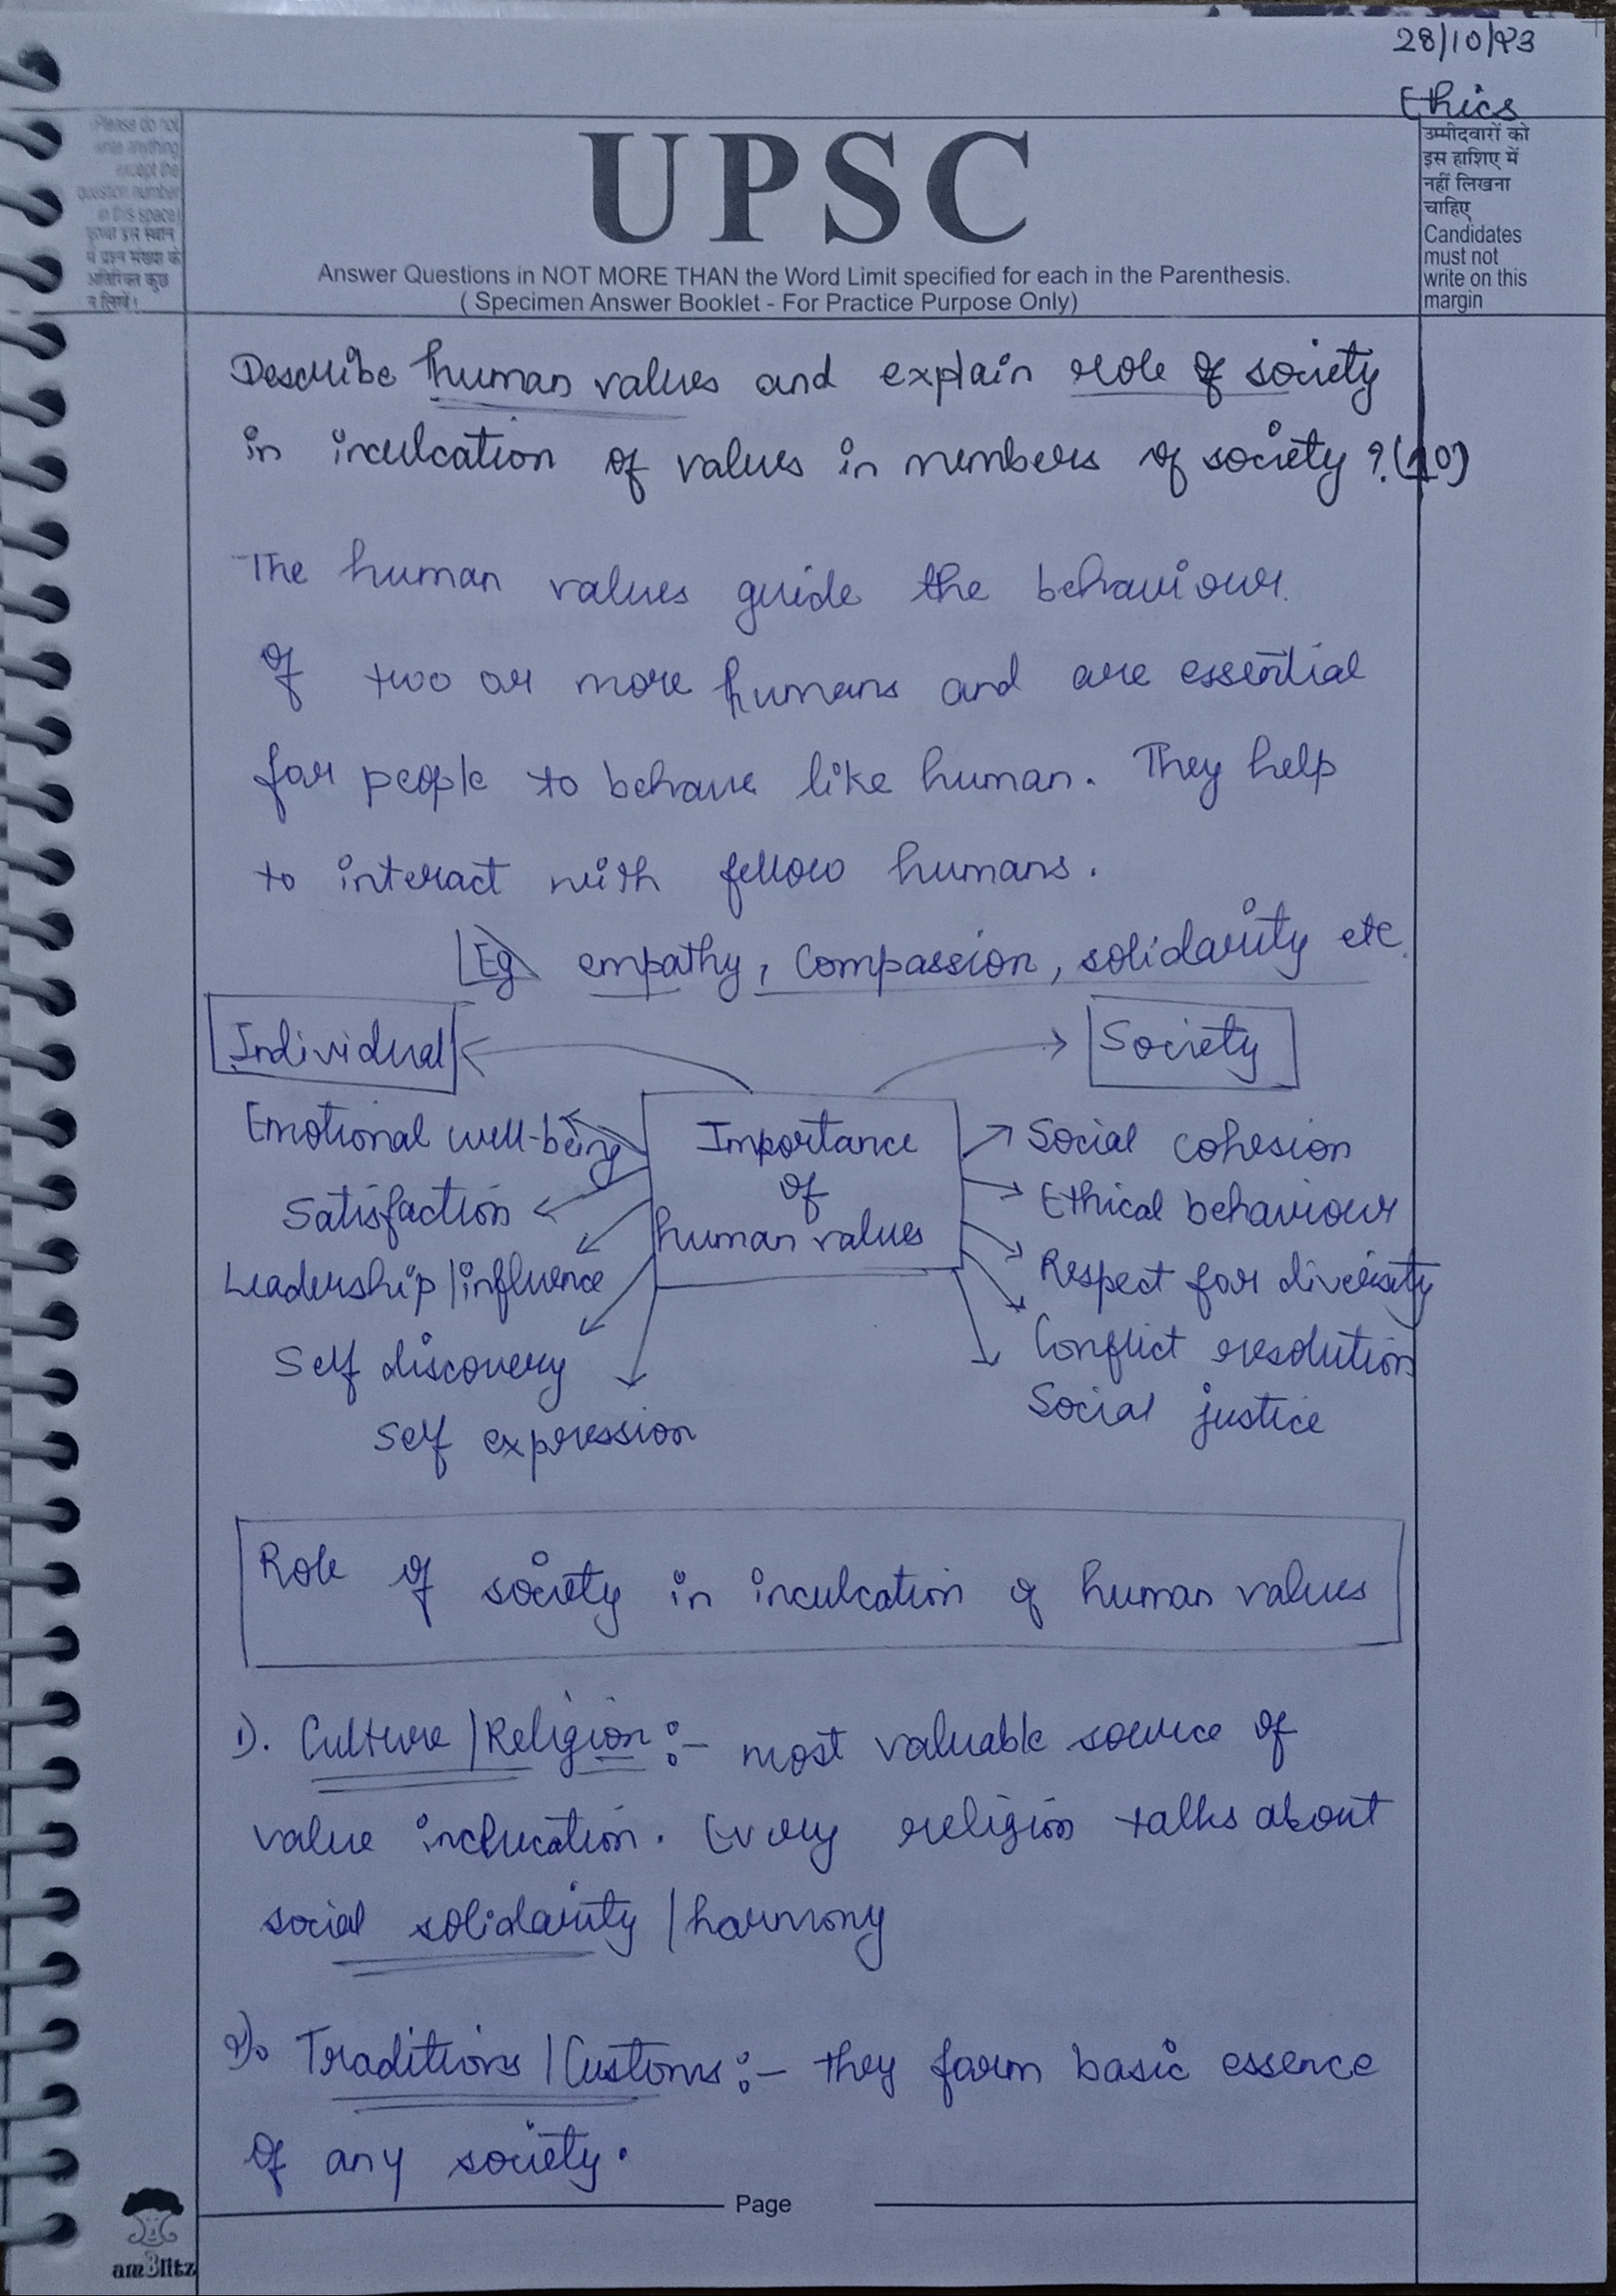 28/10/23
Ethics
(Please do not
write anything
except the
question number
in this space)
कृपया इस स्थान
में प्रश्न संख्या के
अतिरिक्त कुछ
न लिखें।
UPSC
Answer Questions in NOT MORE THAN the Word Limit specified for each in the Parenthesis.
( Specimen Answer Booklet - For Practice Purpose Only)
उम्मीदवारों को
इस हाशिए में
नहीं लिखना
चाहिए
Candidates
must not
write on this
margin
Describe human values and explain role of society
in inculcation of values in members of society ? (10)
The human values guide the behaviour
of two or more humans and are essential
for people to behave like human. They help
to interact with fellow humans.
Eg empathy, compassion, solidarity etc.
Individual
Society
Importance
of
human values
Emotional well-being
Satisfaction
Leadership/influence
Self discovery
Self expression
Social cohesion
Ethical behaviour
Respect for diversity
Conflict resolution
Social justice
Role of society in inculcation of human values
1). Culture/Religion :- most valuable source of
value inclucation. Every religion talks about
social solidarity/harmony
2). Traditions/Customs :- they form basic essence
of any society.
Page
amBlitz